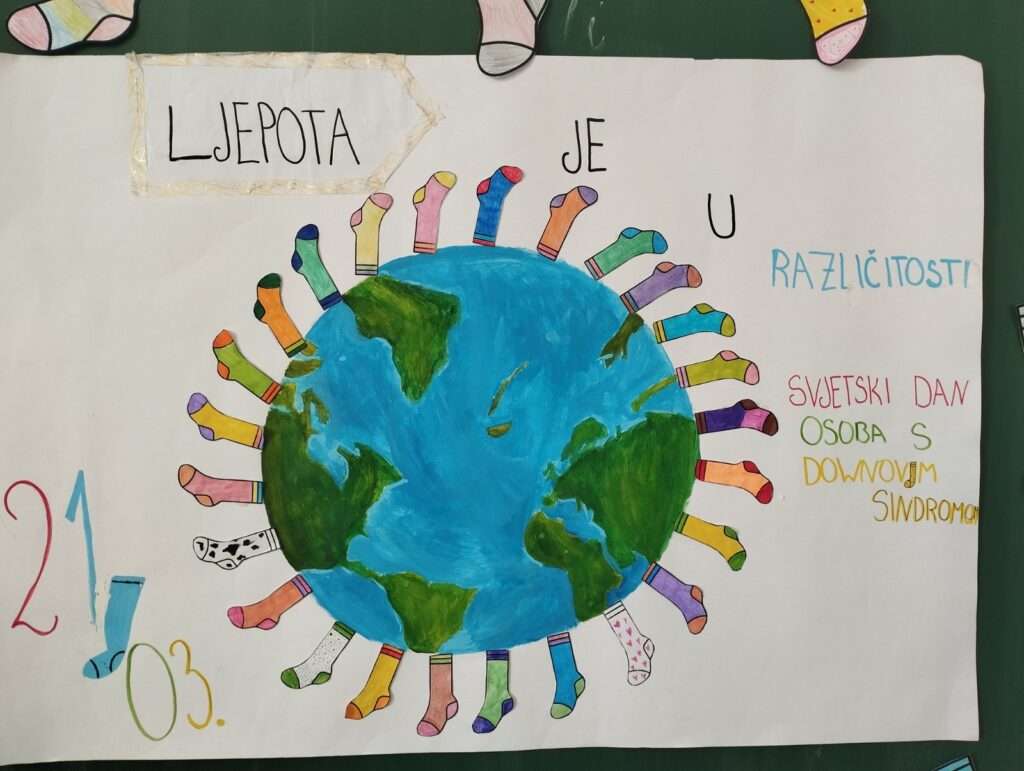 LJEPOTA
JE
U
RAZLIČITOSTI
SVJETSKI DAN
OSOBA S
DOWNOVIM
SINDROMOM
21
03.